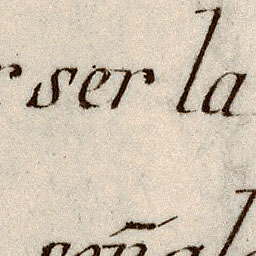 r ser la
señal